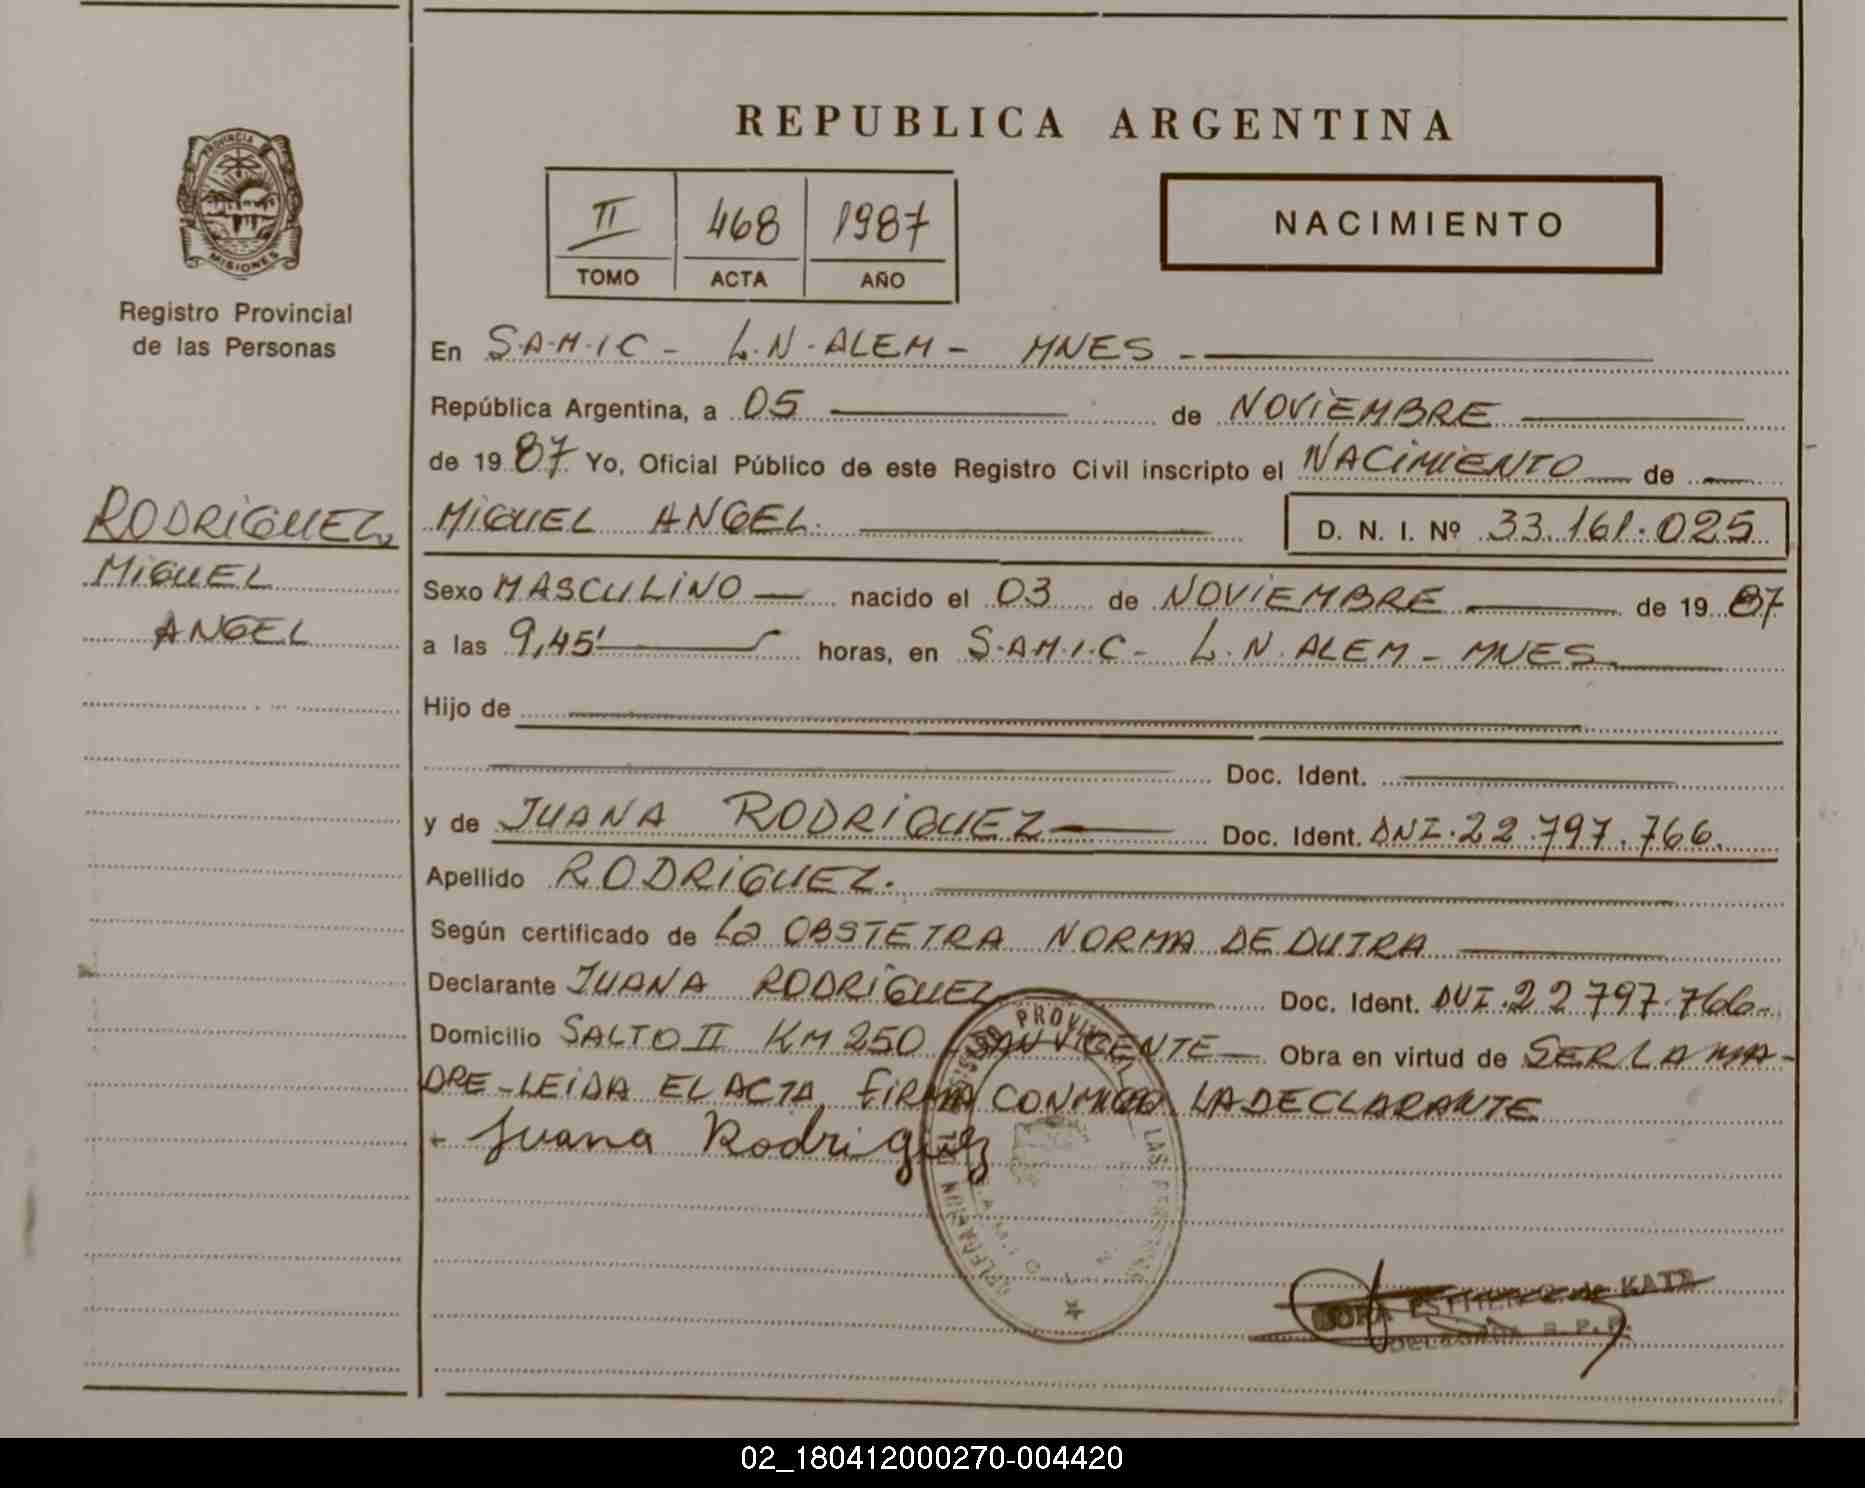 REPUBLICA ARGENTINA
PROVINCIA
MISIONES
Registro Provincial
de las Personas
II 468 1987
TOMO ACTA AÑO
NACIMIENTO
RODRIGUEZ
MIGUEL
ANGEL
En S.A.M.I.C - L.N.ALEM - MNES -
República Argentina, a 05 de NOVIEMBRE
de 1987 Yo, Oficial Público de este Registro Civil inscripto el NACIMIENTO de
MIGUEL ANGEL. D. N. I. Nº 33.161.025
Sexo MASCULINO nacido el 03 de NOVIEMBRE de 1987
a las 9,45' horas, en S.A.M.I.C - L.N.ALEM - MNES
Hijo de
Doc. Ident.
y de JUANA RODRIGUEZ Doc. Ident. DNI.22.797.766.
Apellido RODRIGUEZ.
Según certificado de La OBSTETRA NORMA DE DUTRA
Declarante JUANA RODRIGUEZ Doc. Ident. DNI.22797.766-
Domicilio SALTO II KM 250 SAN VICENTE Obra en virtud de SER LA MA-
DRE - LEIDA EL ACTA FIRMA CONMIGO LA DECLARANTE
Juana Rodriguez
ESTHER de KATZ
02_180412000270-004420